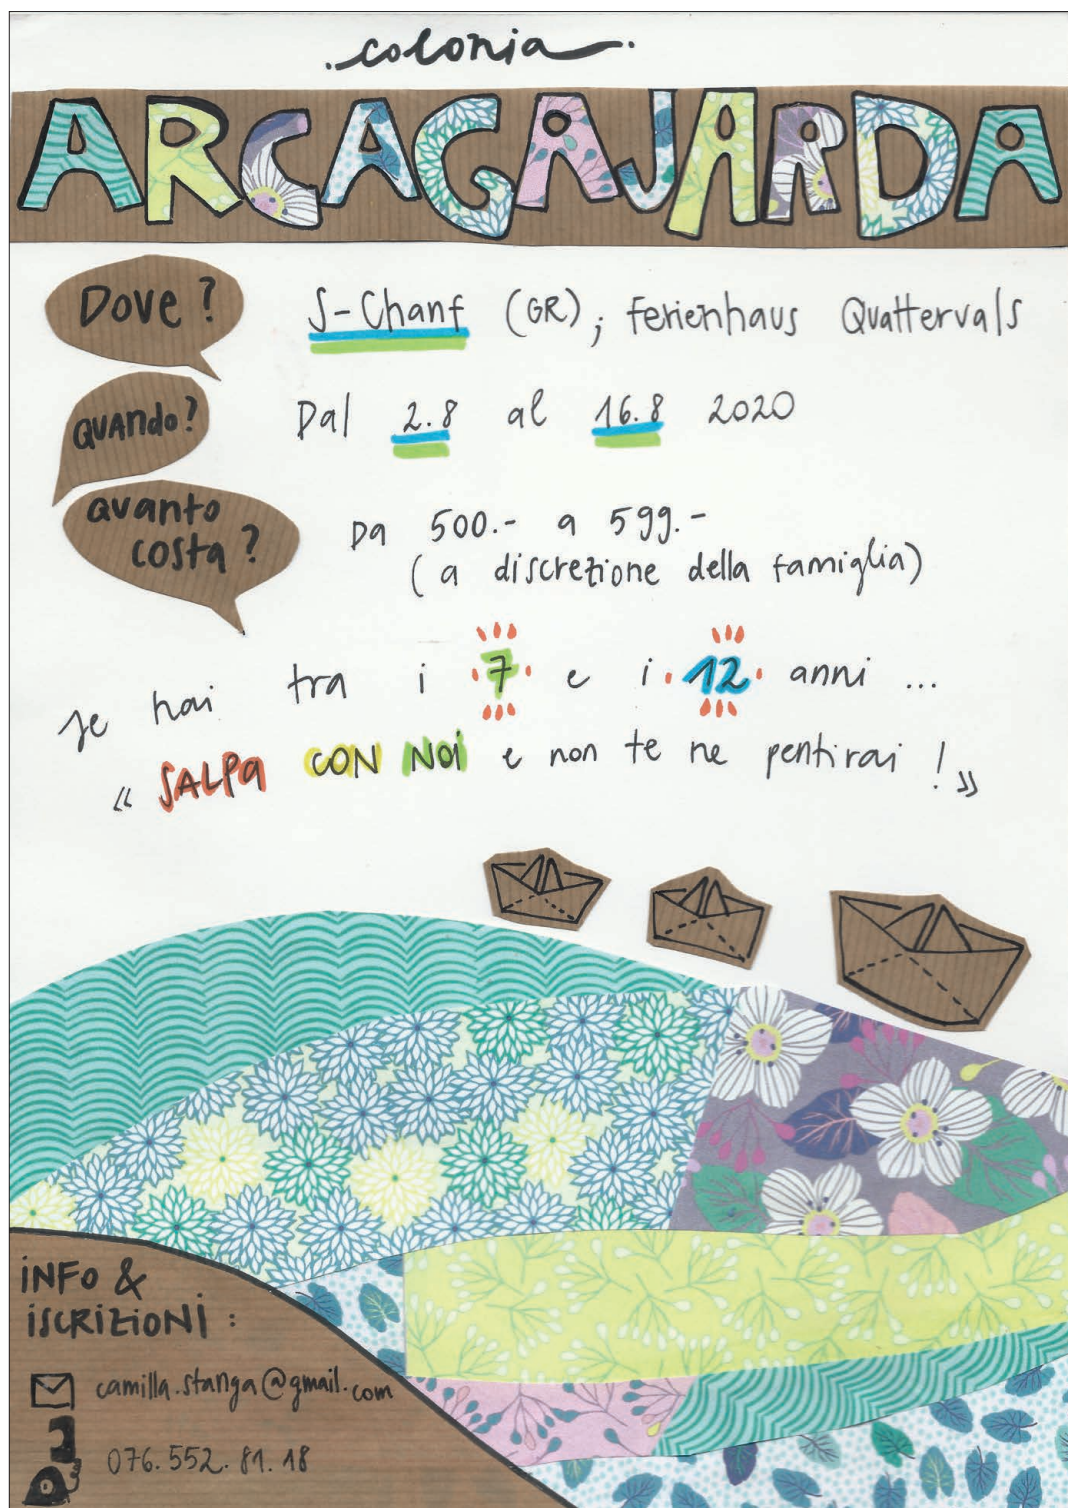 colonia
ARCAGAJARDA
Dove?
S-Chanf (GR); Ferienhaus Quattervals
QUANDO?
Dal 2.8 al 16.8 2020
Quanto
costa?
Da 500.- a 599.-
(a discrezione della famiglia)
Se hai tra i 7 e i 12 anni ...
« SALPA CON NOI e non te ne pentirai ! »
INFO &
ISCRIZIONI :
camilla.stanga@gmail.com
076.552.81.18